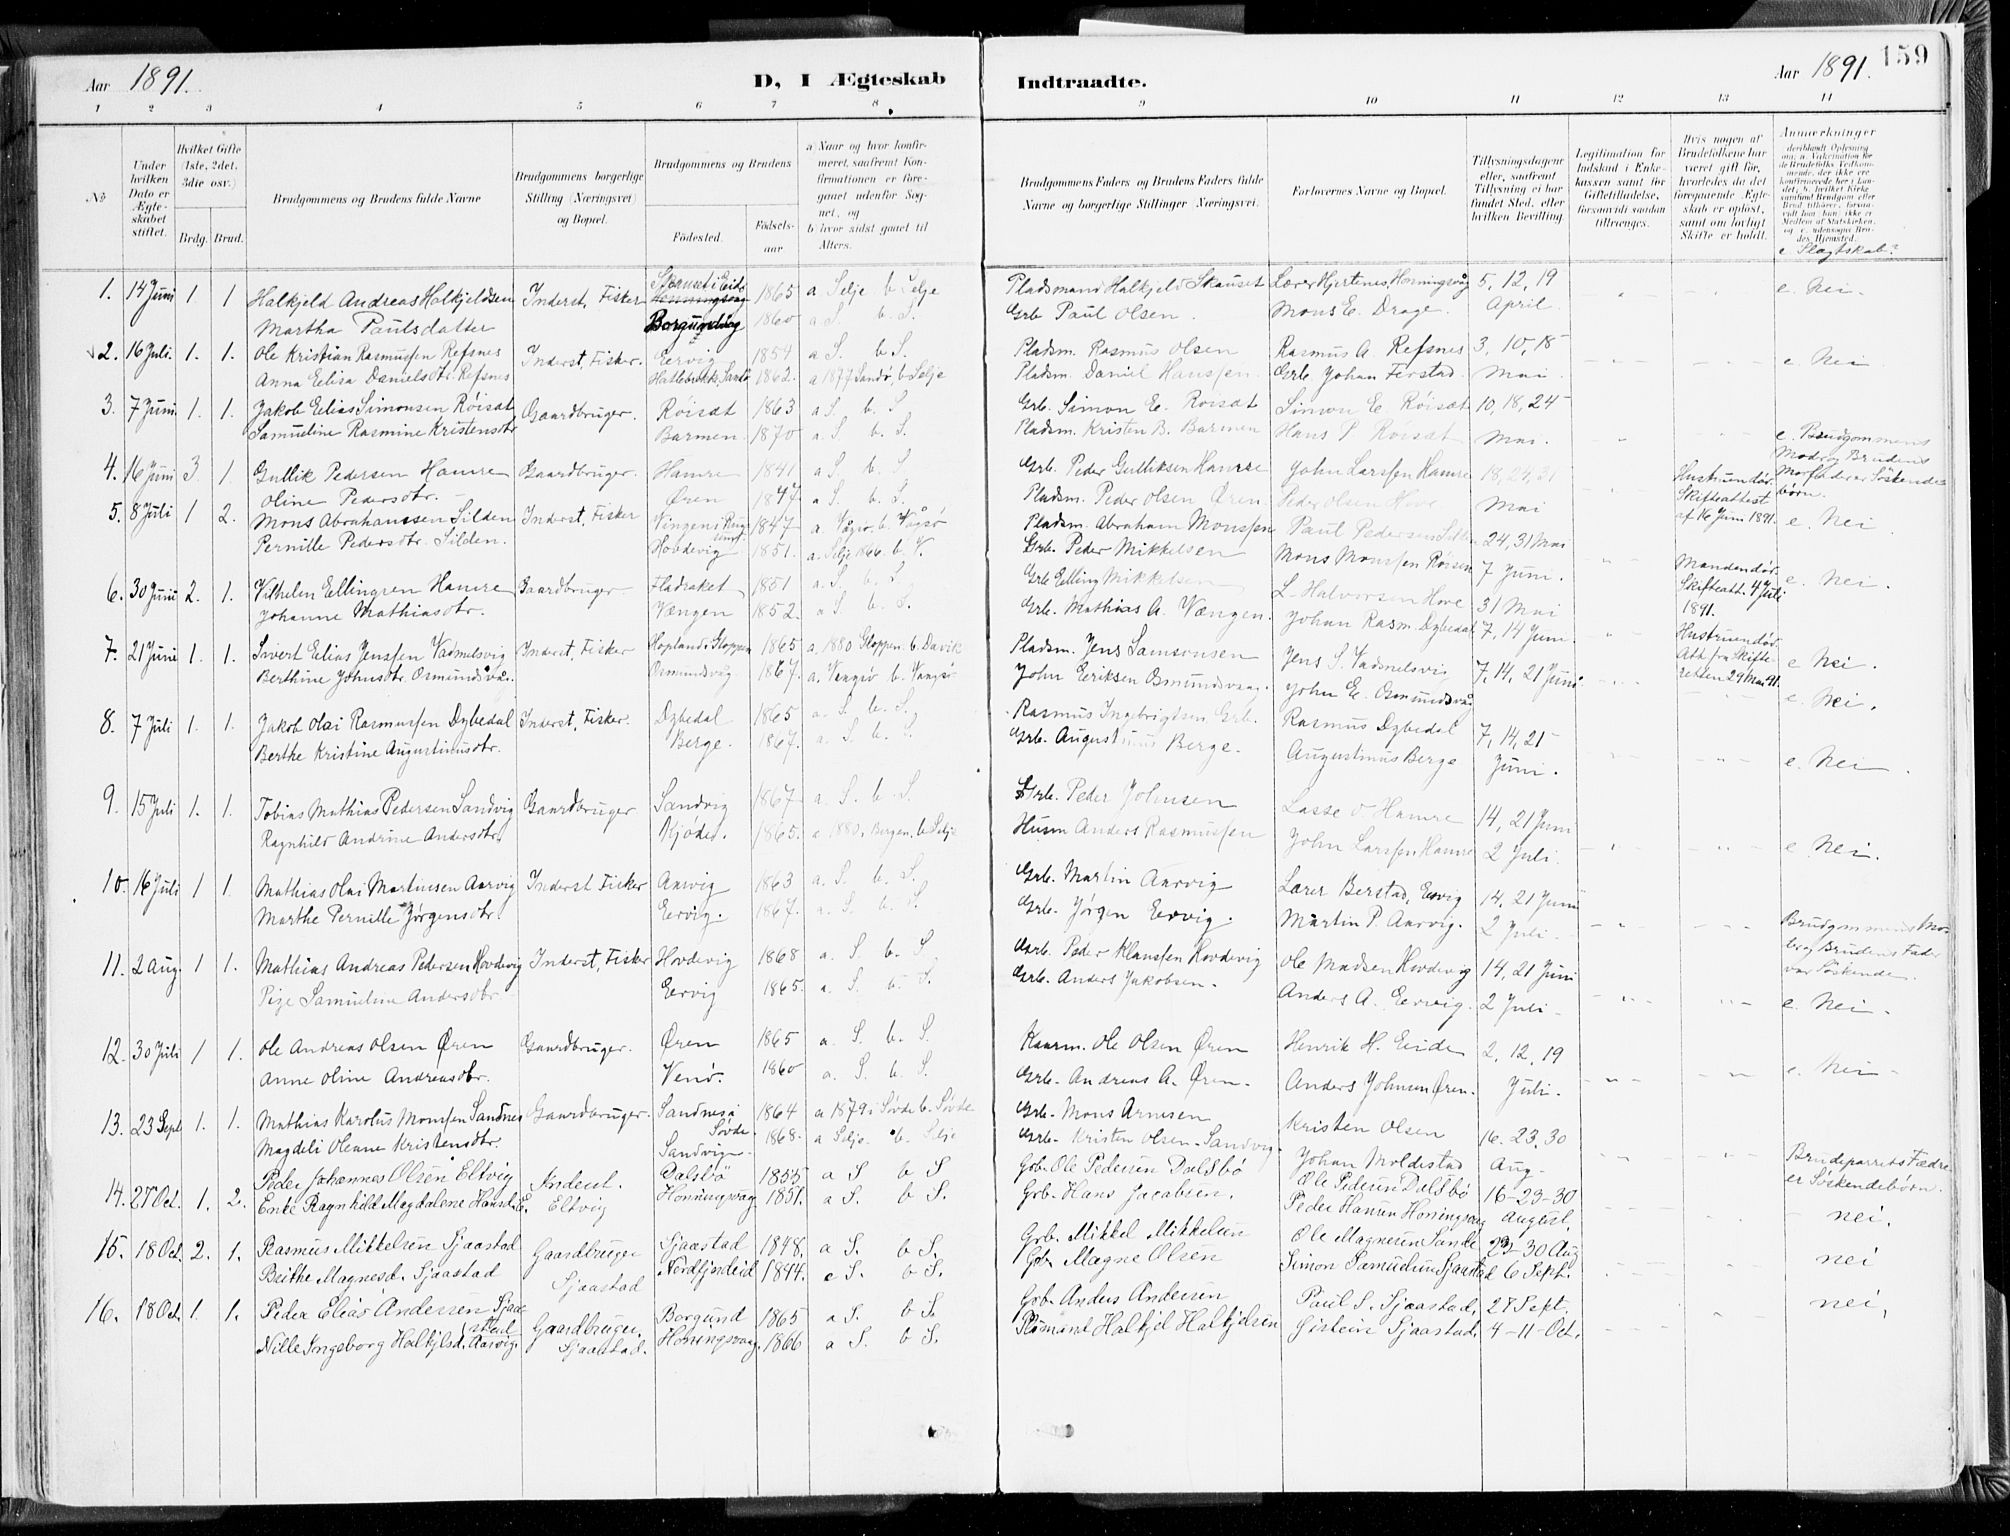 Aar 1891.
D, I Ægteskab Indtraadte.
Aar 1891.
159
1 2 3 4 5 6 7 8 9 10 11 12 13 14
№
Under hvilken Dato er Ægteskabet stiftet.
Hvilket Gifte (1ste, 2det, 3die osv.)
Brdg. Brud.
Brudgommens og Brudens fulde Navne
Brudgommens borgerlige Stilling (Næringsvei) og Bopæl.
Brudgommens og Brudens
Födested.
Födselsaar.
a Naar og hvor konfirmeret, saafremt Konfirmationen er foregaaet udenfor Sognet, og
b hvor sidst gaaet til Alters.
Brudgommens Faders og Brudens Faders fulde Navne og borgerlige Stillinger (Næringsvei.
Forlovernes Navne og Bopæl.
Tillysningsdagene eller, saafremt Tillysning ei har fundet Sted, efter hvilken Bevilling.
Legitimation for Indskud i Enkekassen samt for Giftetilladelse, forsaavidt saadan tiltrænges.
Hvis nogen af Brudefolkene har været gift før, hvorledes da det foregaaende Ægteskab er oplöst, samt om lovligt Skifte er holdt.
Anmerkninger
e Slagtskab?
1. 14 Juni 1. 1 Halkjeld Andreas Halkjeldsen Inderst, Fisker Skauset i Eids 1865 a Selje b Selje Pladsmand Halkjeld Skauset Lærer Hjertenes, Honningsvåg 5, 12, 19 e. Nei.
Martha Paulsdatter 1860 a S. b. S. Grb Paul Olsen. Mons E. Drage. April.
2. 16 Juli. 1. 1. Ole Kristian Rasmussen Refsnes Inderst, Fisker. Eervig 1854 a S. b S. Pladsm. Rasmus Olsen Rasmus A. Refsnes 3, 10, 18 e Nei
Anna Elisa Danielsdtr. Refsnes 1862. a 1877 Sandø, b Selje Pladsm. Daniel Hanssen. Grb. Johan Ferstad. Mai.
3. 7 Juni. 1. 1. Jakob Elias Simonsen Röisæt Gaardbruger. Röisæt 1863 a S. b. S Grb. Simon E. Roisæt Simon E. Röisæt 10, 18, 24
Samueline Rasmine Kristensdtr Barmen. 1870 a. S. b. S. Pladsm. Kristen B. Barmen Hans P. Röisæt Mai. e. Brudgommens Moder og Brudens Morfader er Söskendebörn.
4. 16 Juni 3. 1. Gullik Pedersen Hamre Gaardbruger. Hamre 1841 a S. b. S. Grb. Peder Gulliksen Hamre John Larssen Hamre 18, 24, 31 Hustruen död. Skifteattest af 16 Juni 1891.
Oline Pedersdtr. Øren 1847 a S. b. S. Pladsm. Peder Olsen Øren Peder Olsen Hove Mai
5. 8 Juli 1 2. Mons Abrahamssen Silden Inderst, Fisker 1847 a. Vågsø, b. Vågsø Pladsm. Abraham Monssen Paul Pedersen Silden 24, 31 Mai e. Nei
Pernille Pedersdtr. Silden. Hovdevig 1851. a. Selje 1866. b. V. Grb. Peder Mikkelsen Mons Monssen Röisæt 7 Juni. Manden död. Skifteatt. 4 Juli 1891.
6. 30 Juni 2. 1. Vilhelm Ellingsen Hamre Gaardbruger Fladraket 1851 a. S. b. S. Grb Elling Mikkelsen L. Halvorsen Hove 31 Mai e. Nei.
Johanne Mathiasdtr. Vængen 1852. a S. b. S. Grb. Mathias A. Vængen. Johan Rasm. Dybedal 7, 14 Juni. Hustruen död. Att. fra Skifteretten 29 Mai 91.
7. 21 Juni 1. 1. Sivert Elias Jenssen Vadmelsvig Inderst, Fisker Hopland i Gloppen 1865 a. 1880 Gloppen. b. Davik Pladsm. Jens Samsonsen Jens S. Vadmelsvig 7, 14, 21 Juni e Nei.
Berthine Johnsdtr. Osmundsvåg. Osmundsvåg 1867. a. Vaagsø b. Vaagsø John Eriksen Osmundsvaag. John E. Osmundsvåg e Nei.
8. 7 Juli 1. 1. Jakob Olai Rasmussen Dybedal Inderst, Fisker. Dybedal 1865 a. S. b. S. Rasmus Ingebrigtsen Grb. Rasmus Dybedal 7, 14, 21
Berthe Kristine Augustinusdtr. Berge. 1867. a. S. b. S. Grb. Augustinus Berge. Augustinus Berge Juni. e. Nei.
9. 15 Juli 1. 1. Tobias Mathias Pedersen Sandvig Gaardbruger Sandvig 1867 a. S. b. S Grb. Peder Johnsen Lasse O. Hamre 14, 21 Juni
Ragnhild Andrine Andersdtr. Kjöde. 1865. a. 1880. Bergen. b. Selje Husm Anders Rasmussen John Larssen Hamre 2 Juli. e Nei.
10. 16 Juli 1 1. Mathias Olai Martinesen Aarvig Inderst Fisker Aarvig 1863 a. S. b. S. Grb. Martin Aarvig Lærer Berstad, Eervig 14, 21 Juni
Marthe Pernille Jørgensdtr. Eervig. 1867. a. S. b. S Grb. Jørgen Eervig. Martin P. Aarvig. 2 Juli Brudgommens Moder og Brudens Fader var Söskende.
11. 2 Aug. 1 1. Mathias Andreas Pedersen Hovdevig Inderst, Fisker Hovdevig 1868 a. S. b. S Grb. Peder Klaussen Hovdevig Ole Madsen Hovdevig 14, 21 Juni
Samueline Andersdtr. Eervig 1865. a. S. b. S. Grb. Anders Jakobsen. Anders A. Eervig. 2 Juli. e. Nei.
12. 30 Juli 1 1. Ole Andreas Olsen Øren Gaardbruger. Øren 1865 a. S. b. S. Kaarm. Ole Olsen Øren Henrik H. Eide 2, 12, 19
Anne Oline Andreasdtr. Venö. 1860 a. S. b. S. Grb. Andreas A. Øren. Anders Johnsen Øren. Juli. e. Nei.
13. 23 Sept 1. 1. Mathias Karolus Monssen Sandnes Gaardbruger. Sandnes i Søvde 1864 a 1879 i Søvde b. Søvde Grb. Mons Arnesen Kristen Olsen 16. 23. 30
Magdeli Olenne Kristensdtr. Sandvig 1868. a Selje. b. Selje Grb. Kristen Olsen Sandvig. Johan Moldestad Aug. Brudeparrets Fædre er Söskendebörn.
14. 27 Oct. 1. 2. Peder Johannes Olsen Eltvig Inderst. Dalsbö 1855 a S b S. Grb. Ole Pedersen Dalsbö Ole Pedersen Dalsbö 16-23-30
Enke Ragnhild Magdalene Hansd. E. Eltvig Honningsvaag 1851. a S. b S. Grb. Hans Jacobsen. Peder Hansen Honingsvaag August. nei.
15. 18 Oct. 2. 1. Rasmus Mikkelsen Sjaastad Gaardbruger Sjaastad 1848. a S. b S. Grb. Mikkel Mikkelsen Ole Magnesen Sande 23-30 Aug
Brithe Magnesd. Sjaastad Sjaastad Nordfjordeid 1844. a S. b S. Grb. Magne Olsen Simon Samuelsen Sjaastad 6 Sept. nei
16. 18 Oct. 1. 1. Peder Elias Andersen Sjaastad Gaardbruger. Borgund 1865 a S. b S. Grb. Anders Andersen Paul S. Sjaastad. 27 Sept. nei.
Nille Ingeborg Halkjelsd. Aarvig. Sjaastad. Honingsvaag. 1866 a S. b S. Halkjel Halkjelsen Sjaastad. 4-11-Oct.